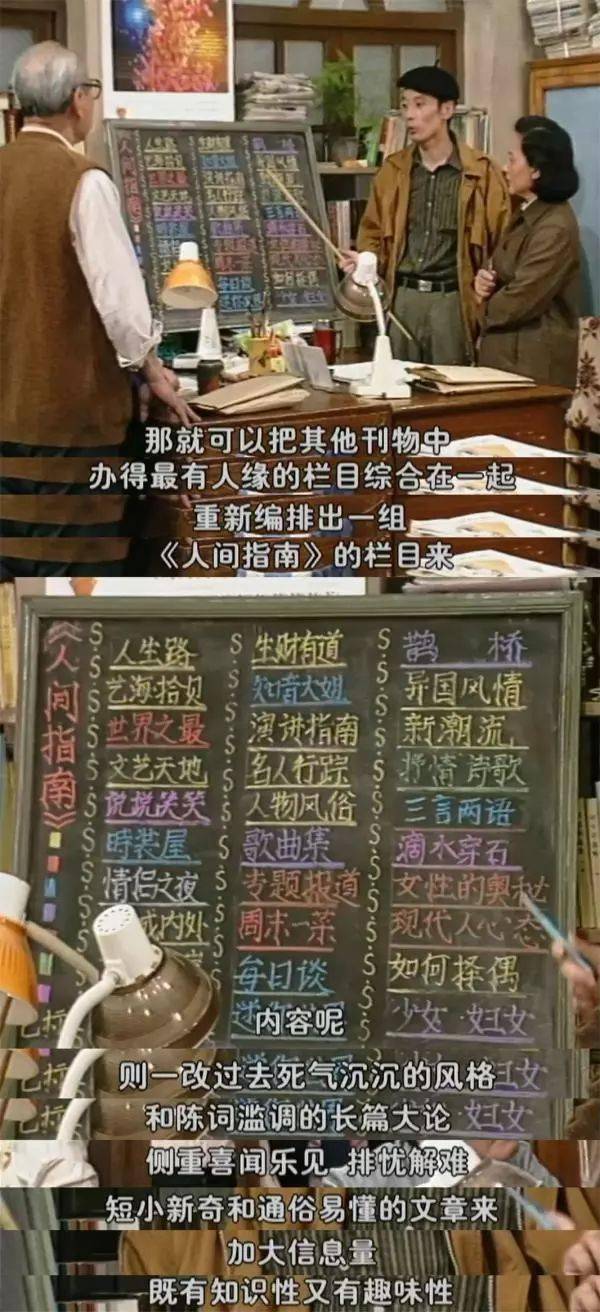 人间指南
那就可以把其他刊物中
办得最有人缘的栏目综合在一起
重新编排出一组
《人间指南》的栏目来
《人间指南》
人生路 生财有道 鹊桥
艺海拾贝 知音大姐 异国风情
世界之最 演讲指南 新潮流
文艺天地 名人行踪 抒情诗歌
说说笑笑 人物风俗 三言两语
時装屋 歌曲集 滴水穿石
情侣之夜 专题报道 女性的奥秘
城内外 周末一菜 现代人心态
每日谈 如何择偶
少女·妇女
内容呢
则一改过去死气沉沉的风格
和陈词滥调的长篇大论
妇女
侧重喜闻乐见 排忧解难
短小新奇和通俗易懂的文章来
加大信息量
既有知识性又有趣味性